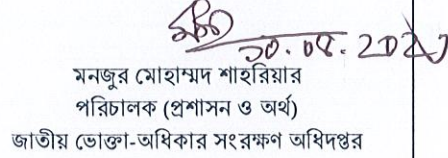 মনজুর মোহাম্মদ শাহরিয়ার
পরিচালক (প্রশাসন ও অর্থ)
জাতীয় ভোক্তা-অধিকার সংরক্ষণ অধিদপ্তর